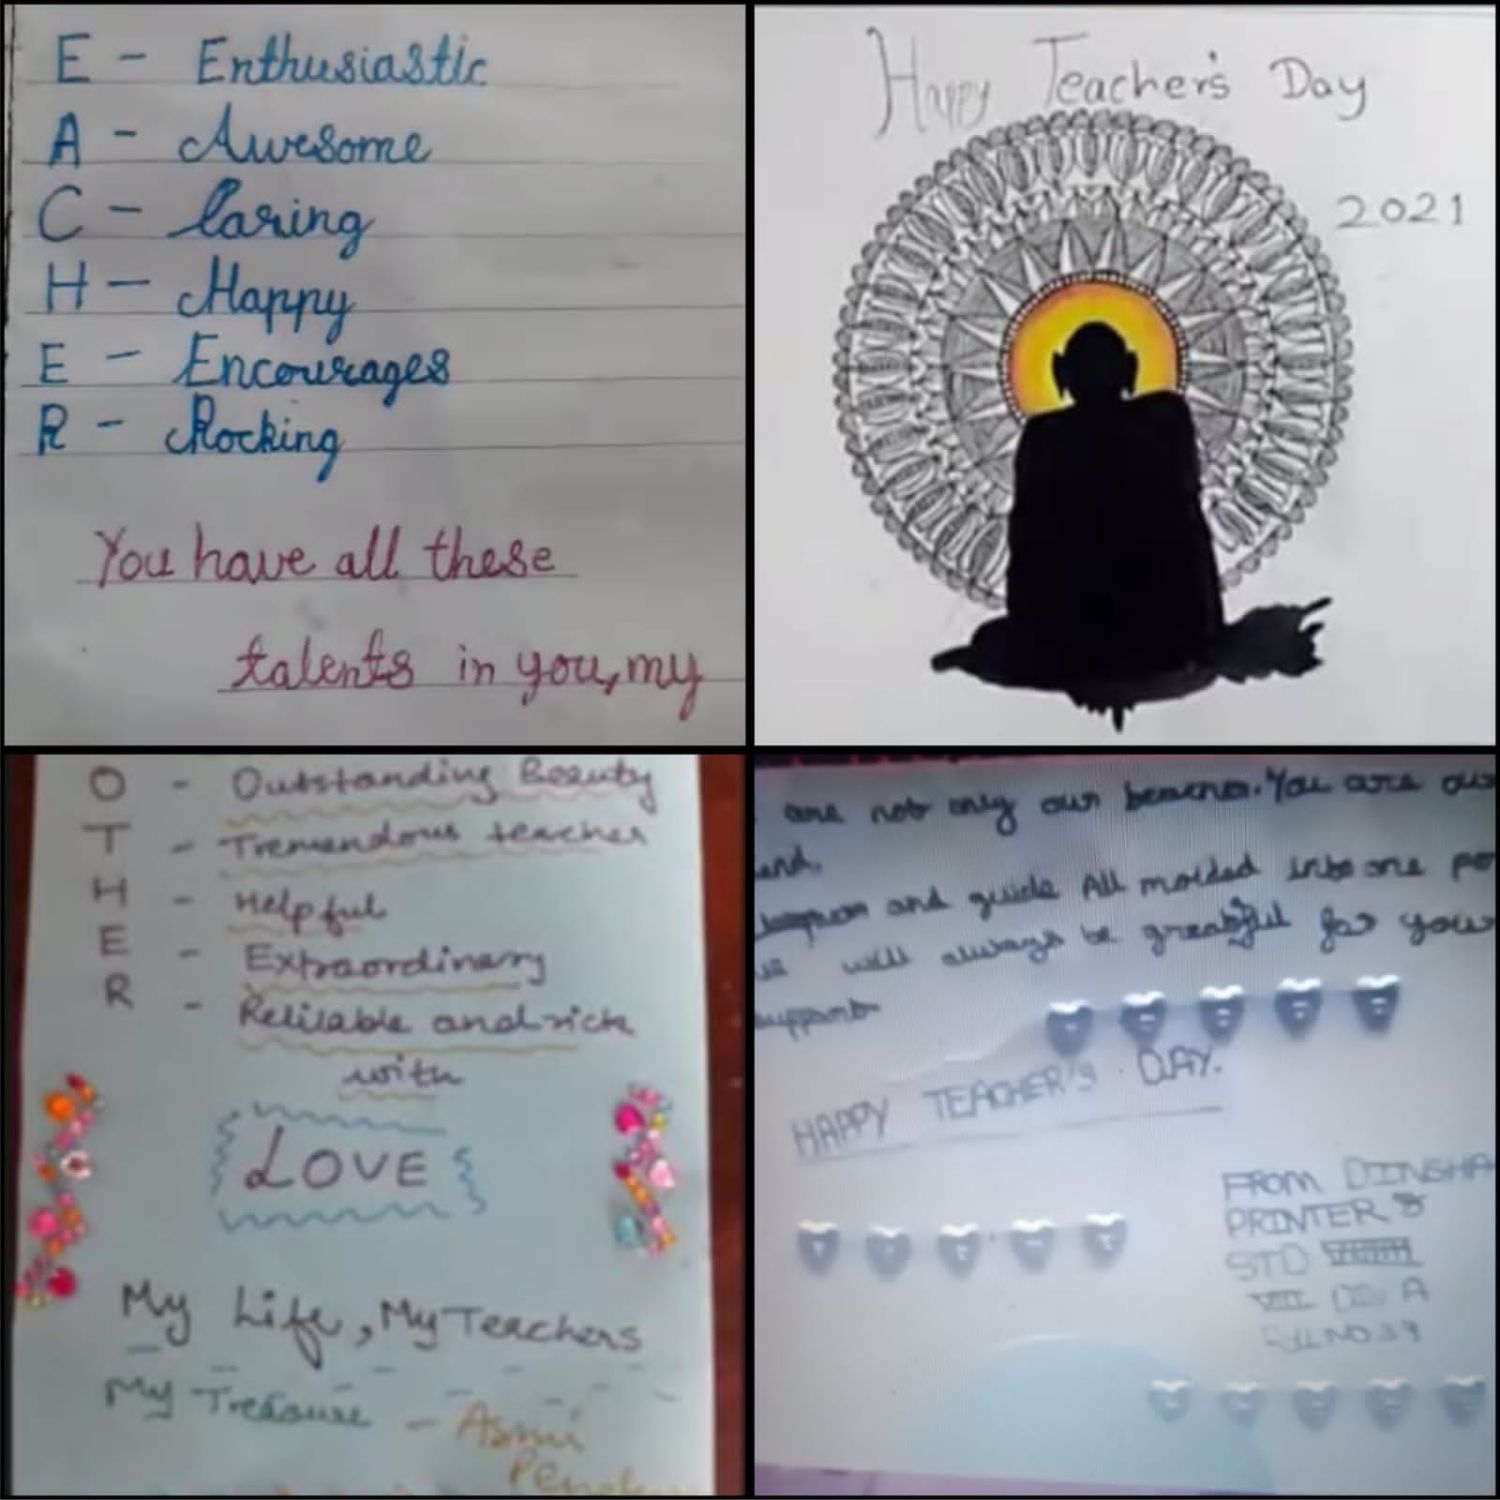 E - Enthusiastic
A - Awesome
C - Caring
H - Happy
E - Encourages
R - Rocking
You have all these
talents in you, my
Happy Teacher's Day
2021
O - Outstanding Beauty
T - Tremendous teacher
H - Helpful
E - Extraordinary
R - Relilable and rich
with
LOVE
My Life, My Teachers
My Treasure - Asmi
are not only our You are ou
end.
and guide All molded into one pe
will always be greatful for your
support
HAPPY TEACHER'S DAY.
FROM DINSHA
PRINTER
STD
VIII DIV A
NO 39